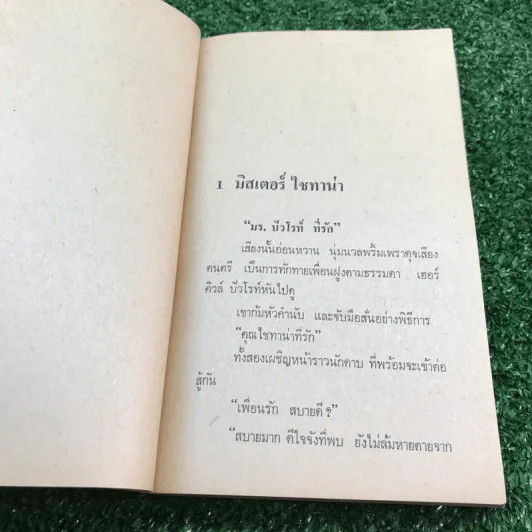 1 มิสเตอร์ ไชทาน่า
“มร. ปัวโรท์ ที่รัก”
เสียงนั้นอ่อนหวาน นุ่มนวลพริ้มเพราดุจเสียง
ดนตรี เป็นการทักทายเพื่อนฝูงตามธรรมดา เฮอร์
คิวล์ ปัวโรท์หันไปดู
เขาก้มหัวคำนับ และจับมือสั่นอย่างพิธีการ
“คุณไชทาน่าที่รัก”
ทั้งสองเผชิญหน้าราวนักดาบ ที่พร้อมจะเข้าต่อ
สู้กัน
“เพื่อนรัก สบายดี?”
“สบายมาก ดีใจจังที่พบ ยังไม่ล้มหายตายจาก